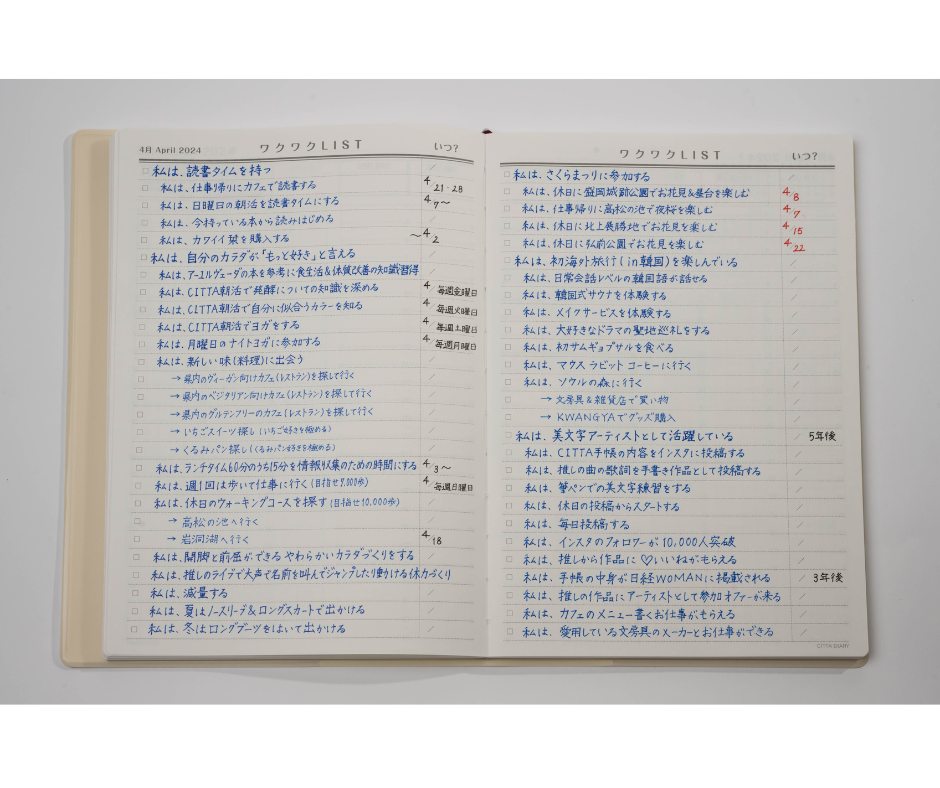 4月 April 2024 ワクワクLIST いつ?
□ 私は、読書タイムを持つ
□ 私は、仕事帰りにカフェで読書する 4/21・28
□ 私は、日曜日の朝活を読書タイムにする 4/7〜
□ 私は、今持っている本から読みはじめる
□ 私は、カワイイ栞を購入する 〜4/2
□ 私は、自分のカラダが「もっと好き」と言える
□ 私は、アーユルヴェーダの本を参考に食生活&体質改善の知識習得
□ 私は、CITTA朝活で発酵についての知識を深める 4/毎週金曜日
□ 私は、CITTA朝活で自分に似合うカラーを知る 4/毎週火曜日
□ 私は、CITTA朝活でヨガをする 4/毎週土曜日
□ 私は、月曜日のナイトヨガに参加する 4/毎週月曜日
□ 私は、新しい味(料理)に出会う
□ →県内のヴィーガン向けカフェ(レストラン)を探して行く
□ →県内のベジタリアン向けカフェ(レストラン)を探して行く
□ →県内のグルテンフリーのカフェ(レストラン)を探して行く
□ →いちごスイーツ探し(いちご好きを極める)
□ →くるみパン探し(くるみパン好きを極める)
□ 私は、ランチタイム60分のうち15分を情報収集のための時間にする 4/3〜
□ 私は、週1回は歩いて仕事に行く(目指せ7,000歩) 4/毎週日曜日
□ 私は、休日のウォーキングコースを探す(目指せ10,000歩)
□ →高松の池へ行く
□ →岩洞湖へ行く 4/18
□ 私は、開脚と前屈ができる やわらかいカラダづくりをする
□ 私は、推しのライブで大声で名前を叫んでジャンプしたり動ける体力づくり
□ 私は、減量する
□ 私は、夏はノースリーブ&ロングスカートで出かける
□ 私は、冬はロングブーツをはいて出かける
ワクワクLIST いつ?
□ 私は、さくらまつりに参加する
□ 私は、休日に盛岡城跡公園でお花見&昼台を楽しむ 4/8
□ 私は、仕事帰りに高松の池で夜桜を楽しむ 4/7
□ 私は、休日に北上展勝地でお花見を楽しむ 4/15
□ 私は、休日に弘前公園でお花見を楽しむ 4/22
□ 私は、初海外旅行(in韓国)を楽しんでいる
□ 私は、日常会話レベルの韓国語が話せる
□ 私は、韓国式サウナを体験する
□ 私は、メイクサービスを体験する
□ 私は、大好きなドラマの聖地巡礼をする
□ 私は、初サムギョプサルを食べる
□ 私は、マウス ラビット コーヒーに行く
□ 私は、ソウルの森に行く
□ →文房具&雑貨店で買い物
□ →KWANGYAでグッズ購入
□ 私は、美文字アーティストとして活躍している 5年後
□ 私は、CITTA手帳の内容をインスタに投稿する
□ 私は、推しの曲の歌詞を手書き作品として投稿する
□ 私は、筆ペンでの美文字練習をする
□ 私は、休日の投稿からスタートする
□ 私は、毎日投稿する
□ 私は、インスタのフォロワーが10,000人突破
□ 私は、推しから作品に♡いいねがもらえる
□ 私は、手帳の中身が日経WOMANに掲載される 3年後
□ 私は、推しの作品にアーティストとして参加オファーが来る
□ 私は、カフェのメニュー書くお仕事がもらえる
□ 私は、愛用している文房具のメーカーとお仕事ができる
CITTA DIARY